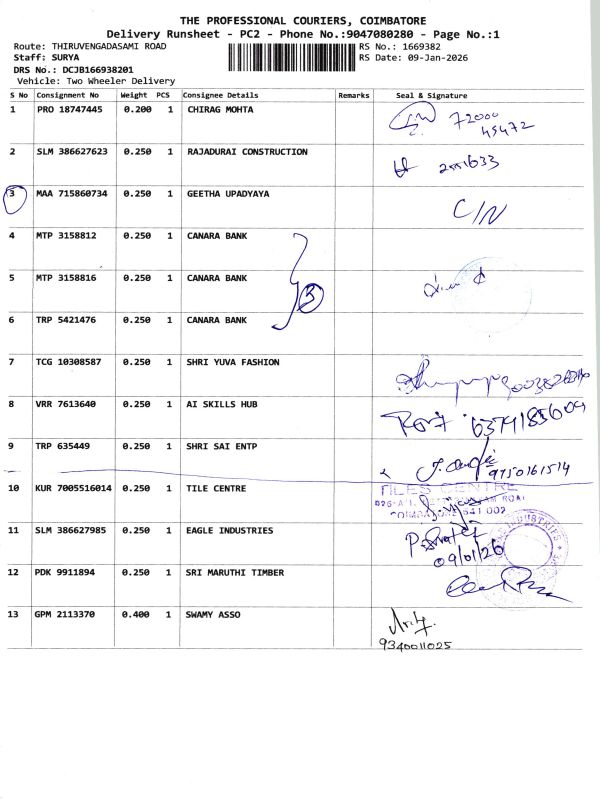 THE PROFESSIONAL COURIERS, COIMBATORE
Delivery Runsheet - PC2 - Phone No.:9047080280 - Page No.:1
Route: THIRUVENGADASAMI ROAD RS No.: 1669382
Staff: SURYA RS Date: 09-Jan-2026
DRS No.: DCJB166938201
Vehicle: Two Wheeler Delivery
S No Consignment No Weight PCS Consignee Details Remarks Seal & Signature
1 PRO 18747445 0.200 1 CHIRAG MOHTA 72000
45472
2 SLM 386627623 0.250 1 RAJADURAI CONSTRUCTION
3 MAA 715860734 0.250 1 GEETHA UPADYAYA C/N
4 MTP 3158812 0.250 1 CANARA BANK
5 MTP 3158816 0.250 1 CANARA BANK
3
6 TRP 5421476 0.250 1 CANARA BANK
7 TCG 10308587 0.250 1 SHRI YUVA FASHION
8 VRR 7613640 0.250 1 AI SKILLS HUB 6374185609
9 TRP 635449 0.250 1 SHRI SAI ENTP
9750161514
10 KUR 7005516014 0.250 1 TILE CENTRE TILES CENTRE
641 002
11 SLM 386627985 0.250 1 EAGLE INDUSTRIES
09/01/26
12 PDK 9911894 0.250 1 SRI MARUTHI TIMBER
13 GPM 2113370 0.400 1 SWAMY ASSO
9340011025